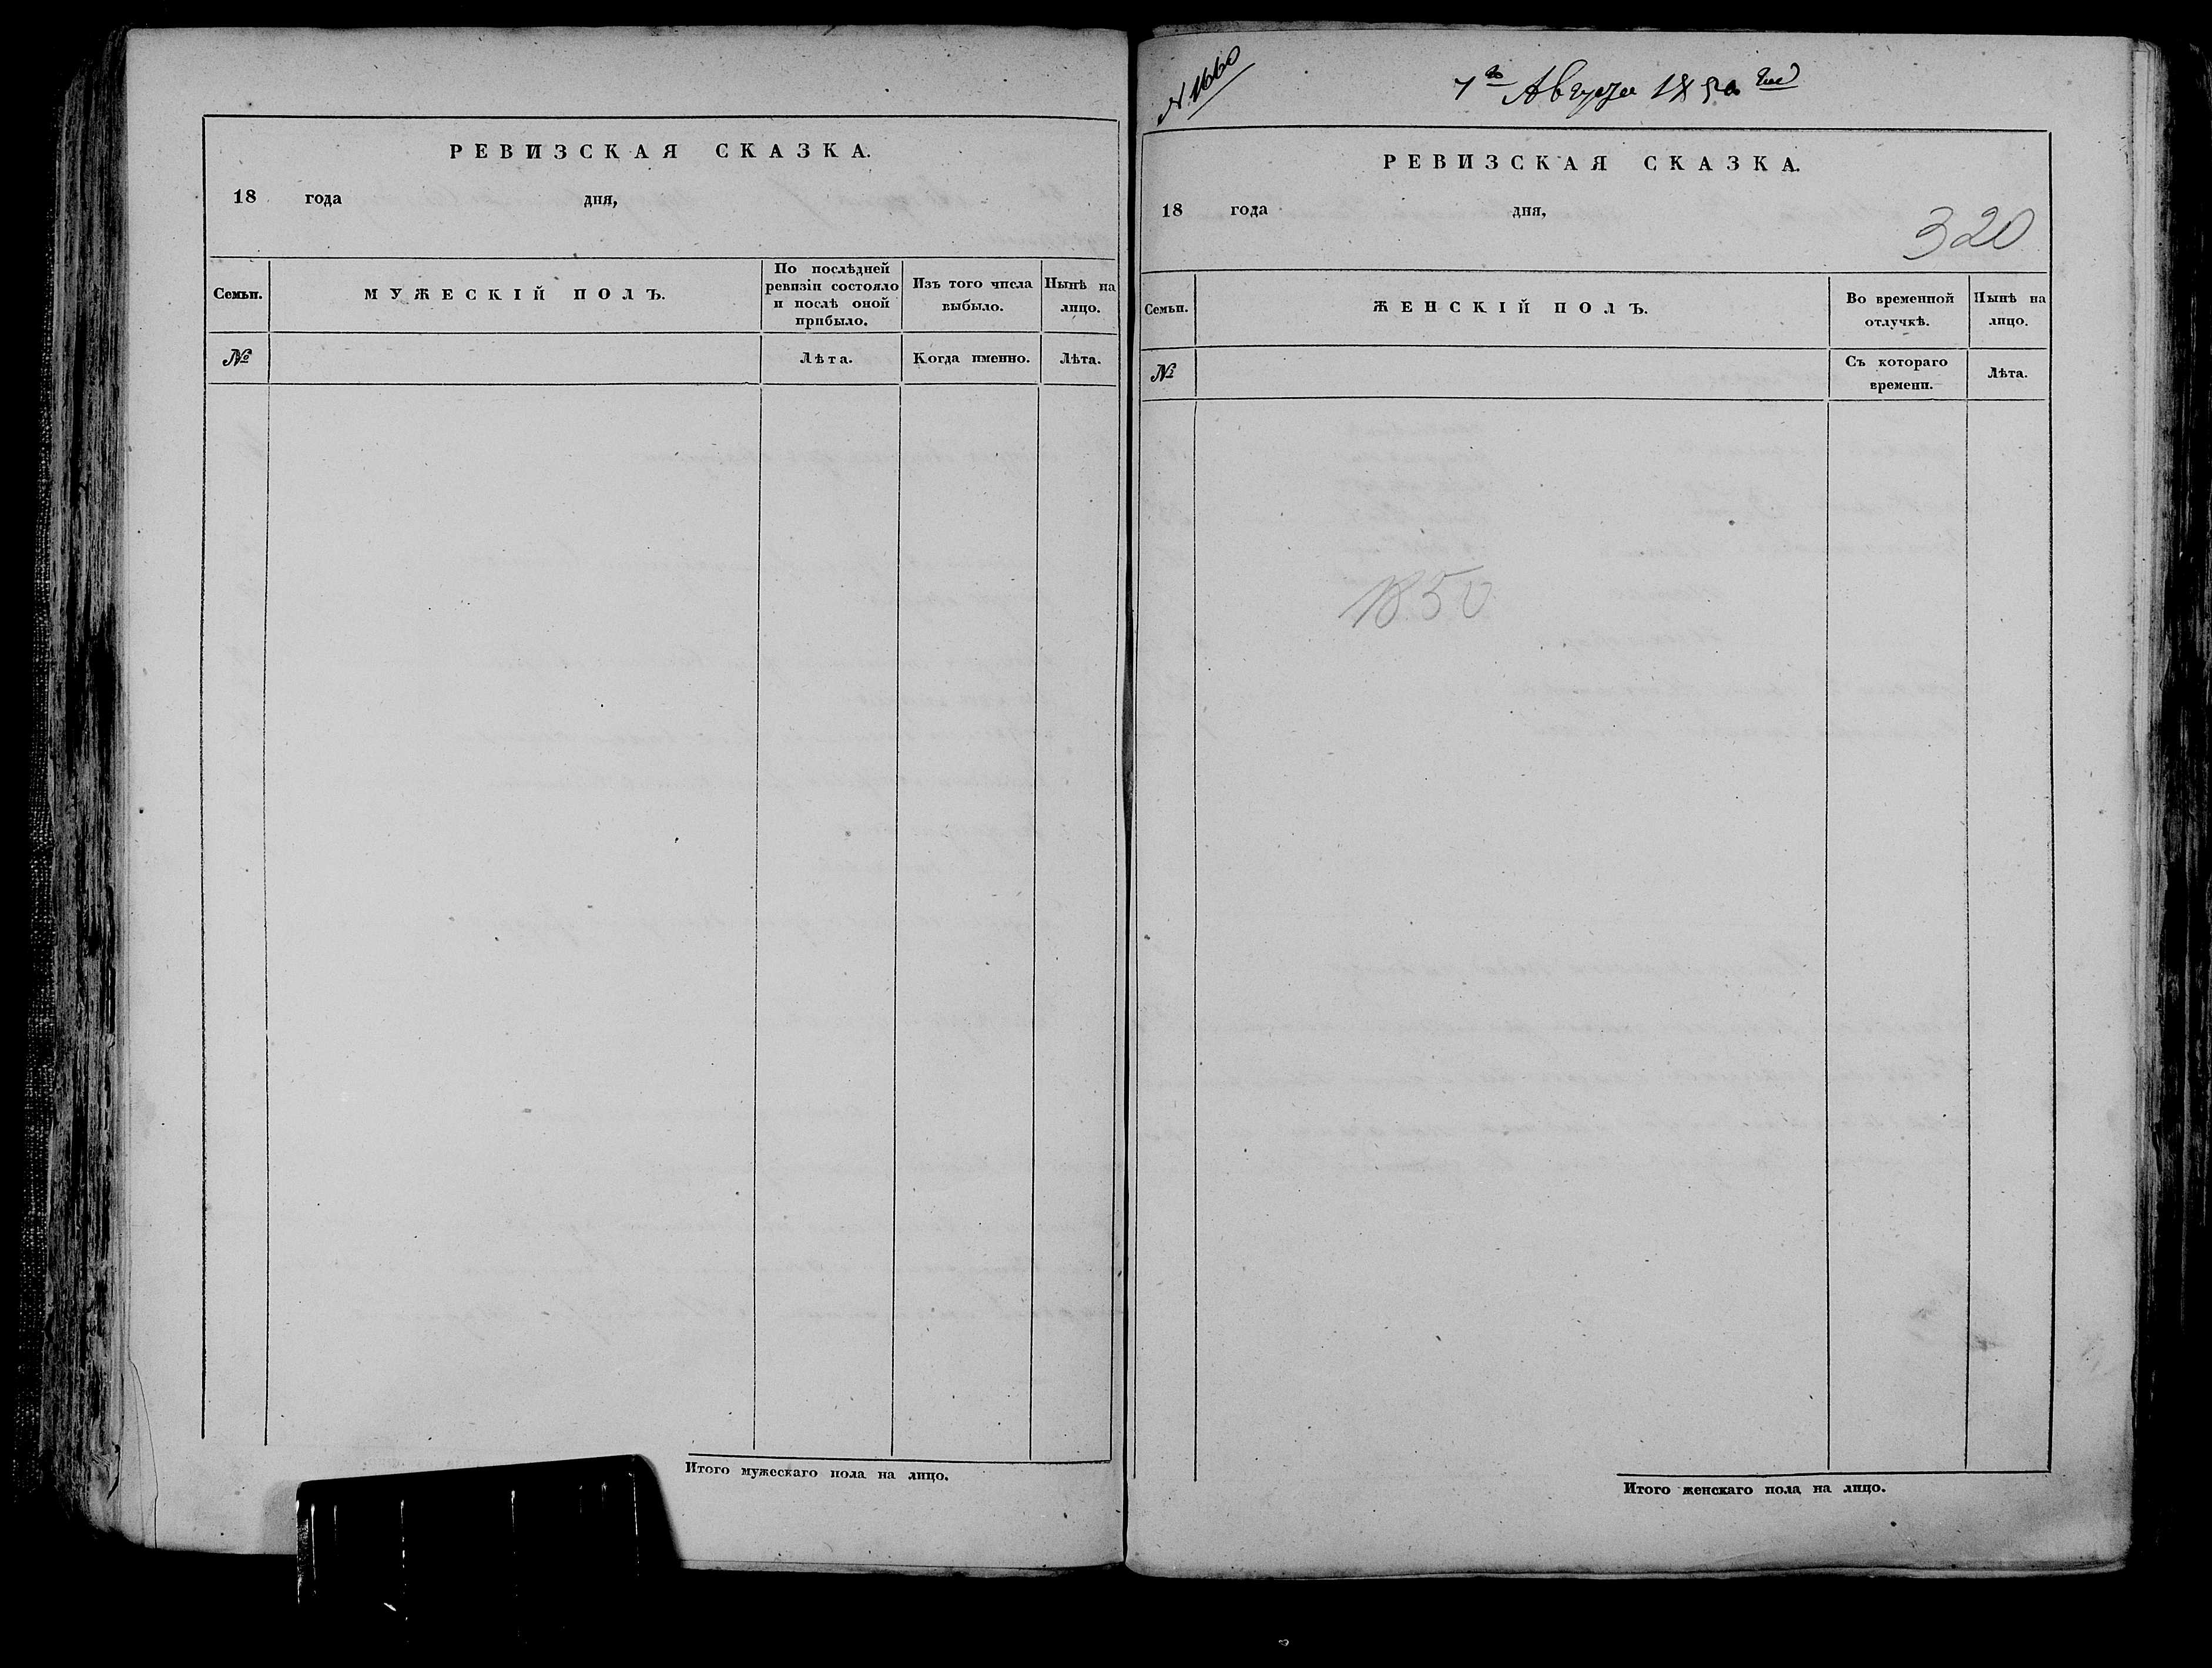 РЕВИЗСКАЯ СКАЗКА.
18 года дня,
Семьи. МУЖЕСКІЙ ПОЛЪ. По послѣдней ревизіи состояло и послѣ оной прибыло. Изъ того числа выбыло. Нынѣ на лицо.
№ Лѣта. Когда именно. Лѣта.
Итого мужескаго пола на лицо.
№ 1660
7го Августа 1850 года
РЕВИЗСКАЯ СКАЗКА.
18 года дня,
320
Семьи. ЖЕНСКІЙ ПОЛЪ. Во временной отлучкѣ. Нынѣ на лицо.
№ Съ котораго времени. Лѣта.
1850
Итого женскаго пола на лицо.